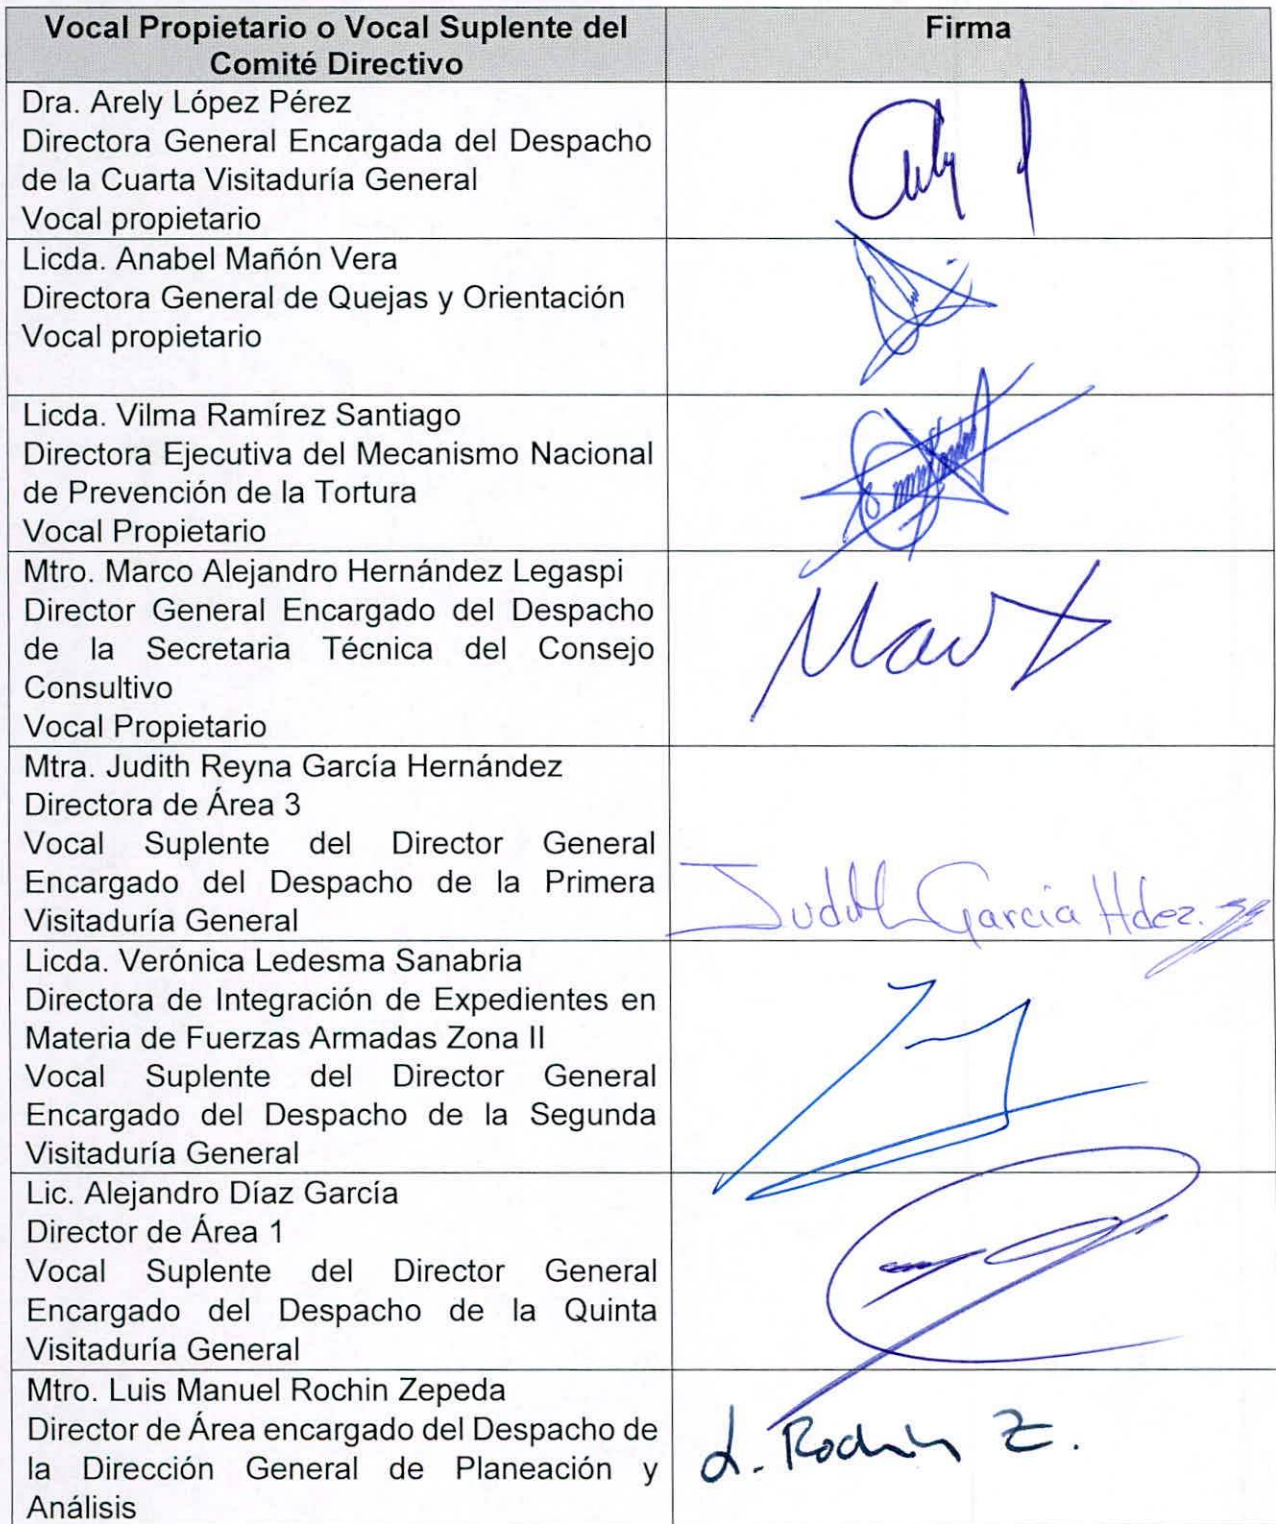 Vocal Propietario o Vocal Suplente del
Comité Directivo
Firma
Dra. Arely López Pérez
Directora General Encargada del Despacho
de la Cuarta Visitaduría General
Vocal propietario
Licda. Anabel Mañón Vera
Directora General de Quejas y Orientación
Vocal propietario
Licda. Vilma Ramírez Santiago
Directora Ejecutiva del Mecanismo Nacional
de Prevención de la Tortura
Vocal Propietario
Mtro. Marco Alejandro Hernández Legaspi
Director General Encargado del Despacho
de la Secretaria Técnica del Consejo
Consultivo
Vocal Propietario
Mtra. Judith Reyna García Hernández
Directora de Área 3
Vocal Suplente del Director General
Encargado del Despacho de la Primera
Visitaduría General
Judith García Hdez.
Licda. Verónica Ledesma Sanabria
Directora de Integración de Expedientes en
Materia de Fuerzas Armadas Zona II
Vocal Suplente del Director General
Encargado del Despacho de la Segunda
Visitaduría General
Lic. Alejandro Díaz García
Director de Área 1
Vocal Suplente del Director General
Encargado del Despacho de la Quinta
Visitaduría General
Mtro. Luis Manuel Rochin Zepeda
Director de Área encargado del Despacho de
la Dirección General de Planeación y
Análisis
L. Rochin Z.